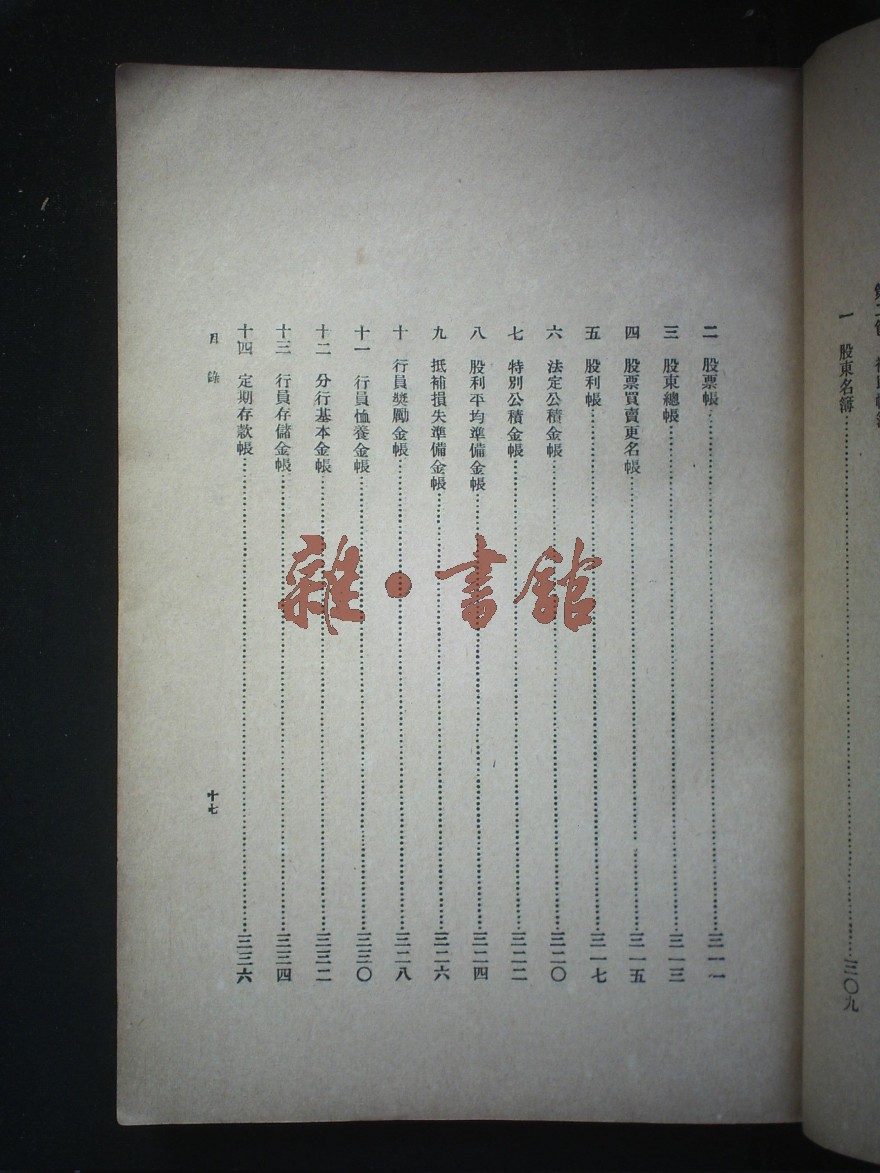 一　股東名簿……三〇九
二　股票帳……三一一
三　股東總帳……三一三
四　股票買賣更名帳……三一五
五　股利帳……三一七
六　法定公積金帳……三二〇
七　特別公積金帳……三二二
八　股利平均準備金帳……三二四
九　抵補損失準備金帳……三二六
十　行員獎勵金帳……三二八
十一　行員恤養金帳……三三〇
十二　分行基本金帳……三三二
十三　行員存儲金帳……三三四
十四　定期存款帳……三三六
目錄
十七
雜·書館